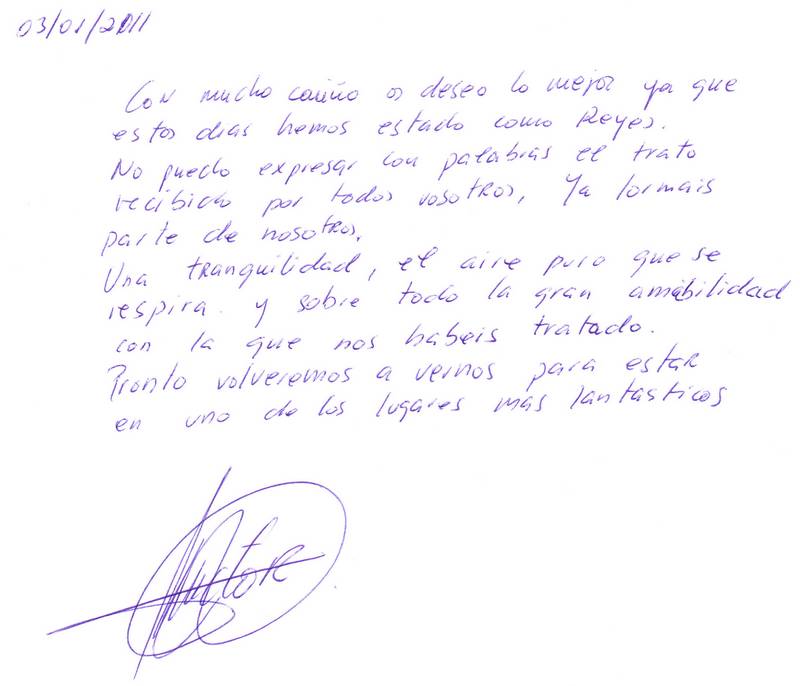 03/01/2011
Con mucho cariño os deseo lo mejor ya que
estos dias hemos estado como Reyes.
No puedo expresar con palabras el trato
recibido por todos vosotros, Ya formais
parte de nosotros.
Una tranquilidad, el aire puro que se
respira y sobre todo la gran amabilidad
con la que nos habeis tratado.
Pronto volveremos a vernos para estar
en uno de los lugares mas fantasticos